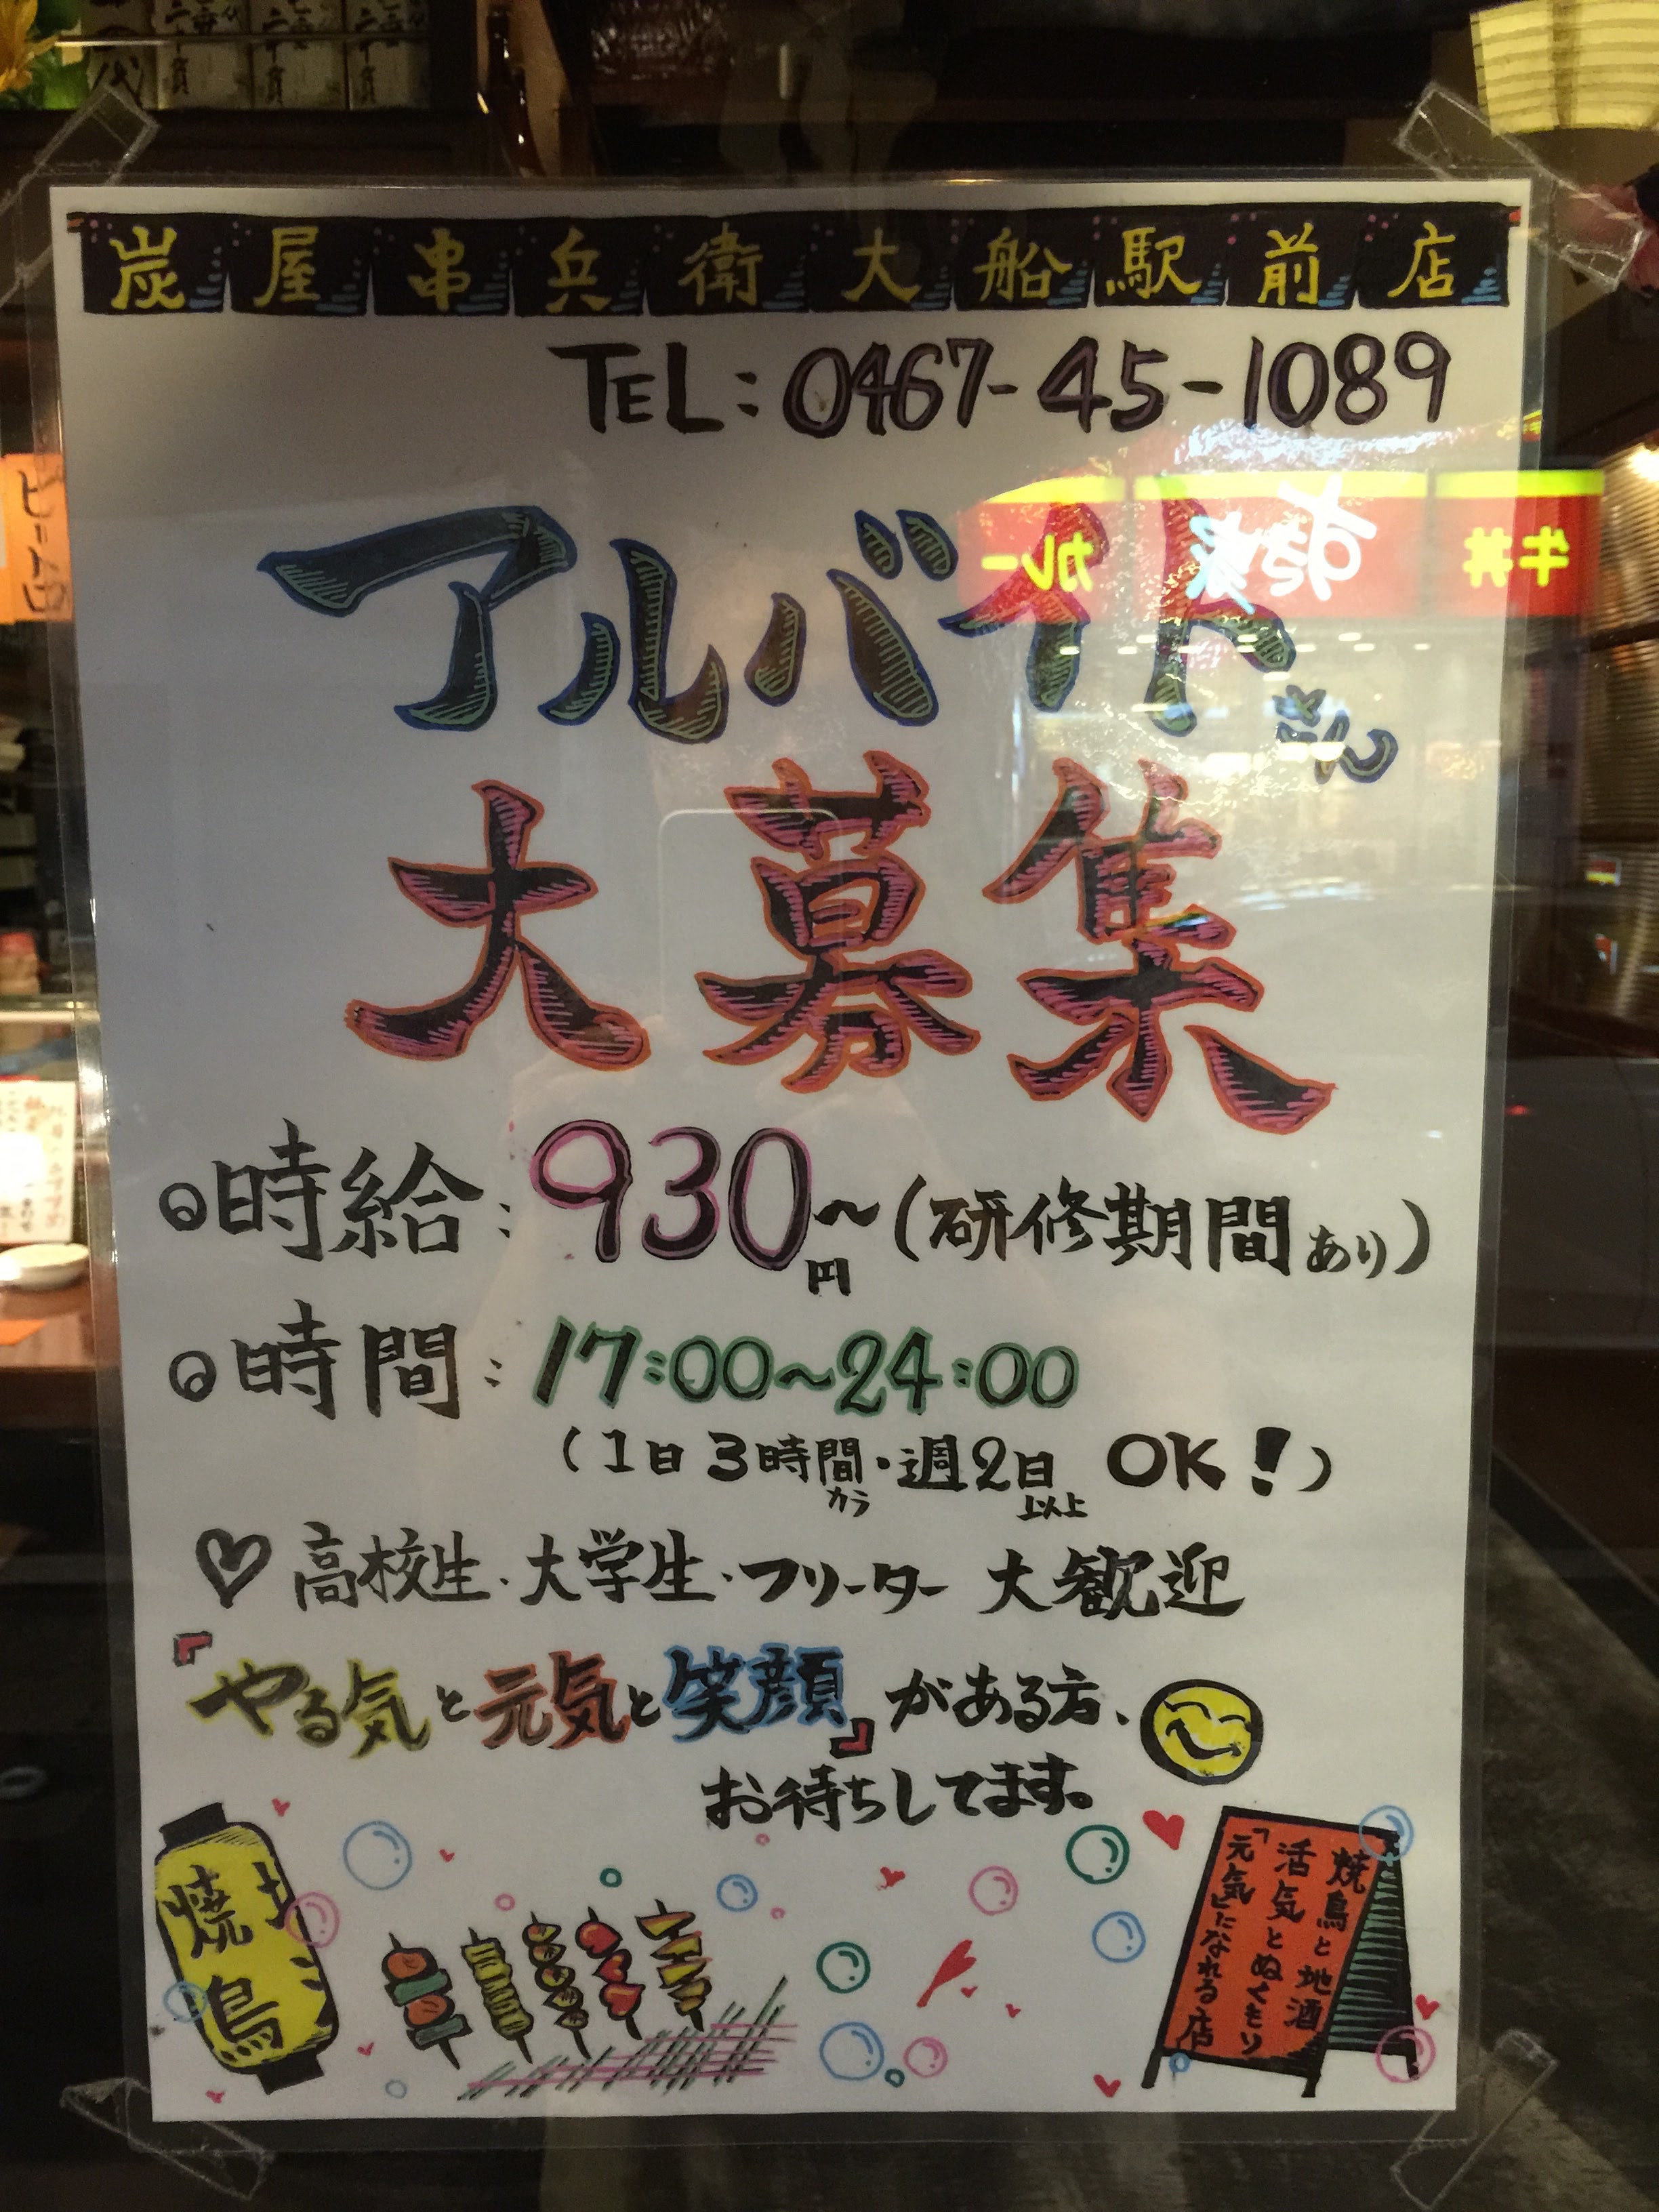 炭屋串兵衛大船駅前店
TEL:0467-45-1089
アルバイトさん
大募集
時給:930円〜(研修期間あり)
時間:17:00〜24:00
(1日3時間から・週2日以上 OK!)
♡高校生・大学生・フリーター 大歓迎
『やる気と元気と笑顔』がある方、
お待ちしてます。
焼鳥
焼鳥と地酒
活気とぬくもり
「元気」になれる店
カレー
すき家
牛丼